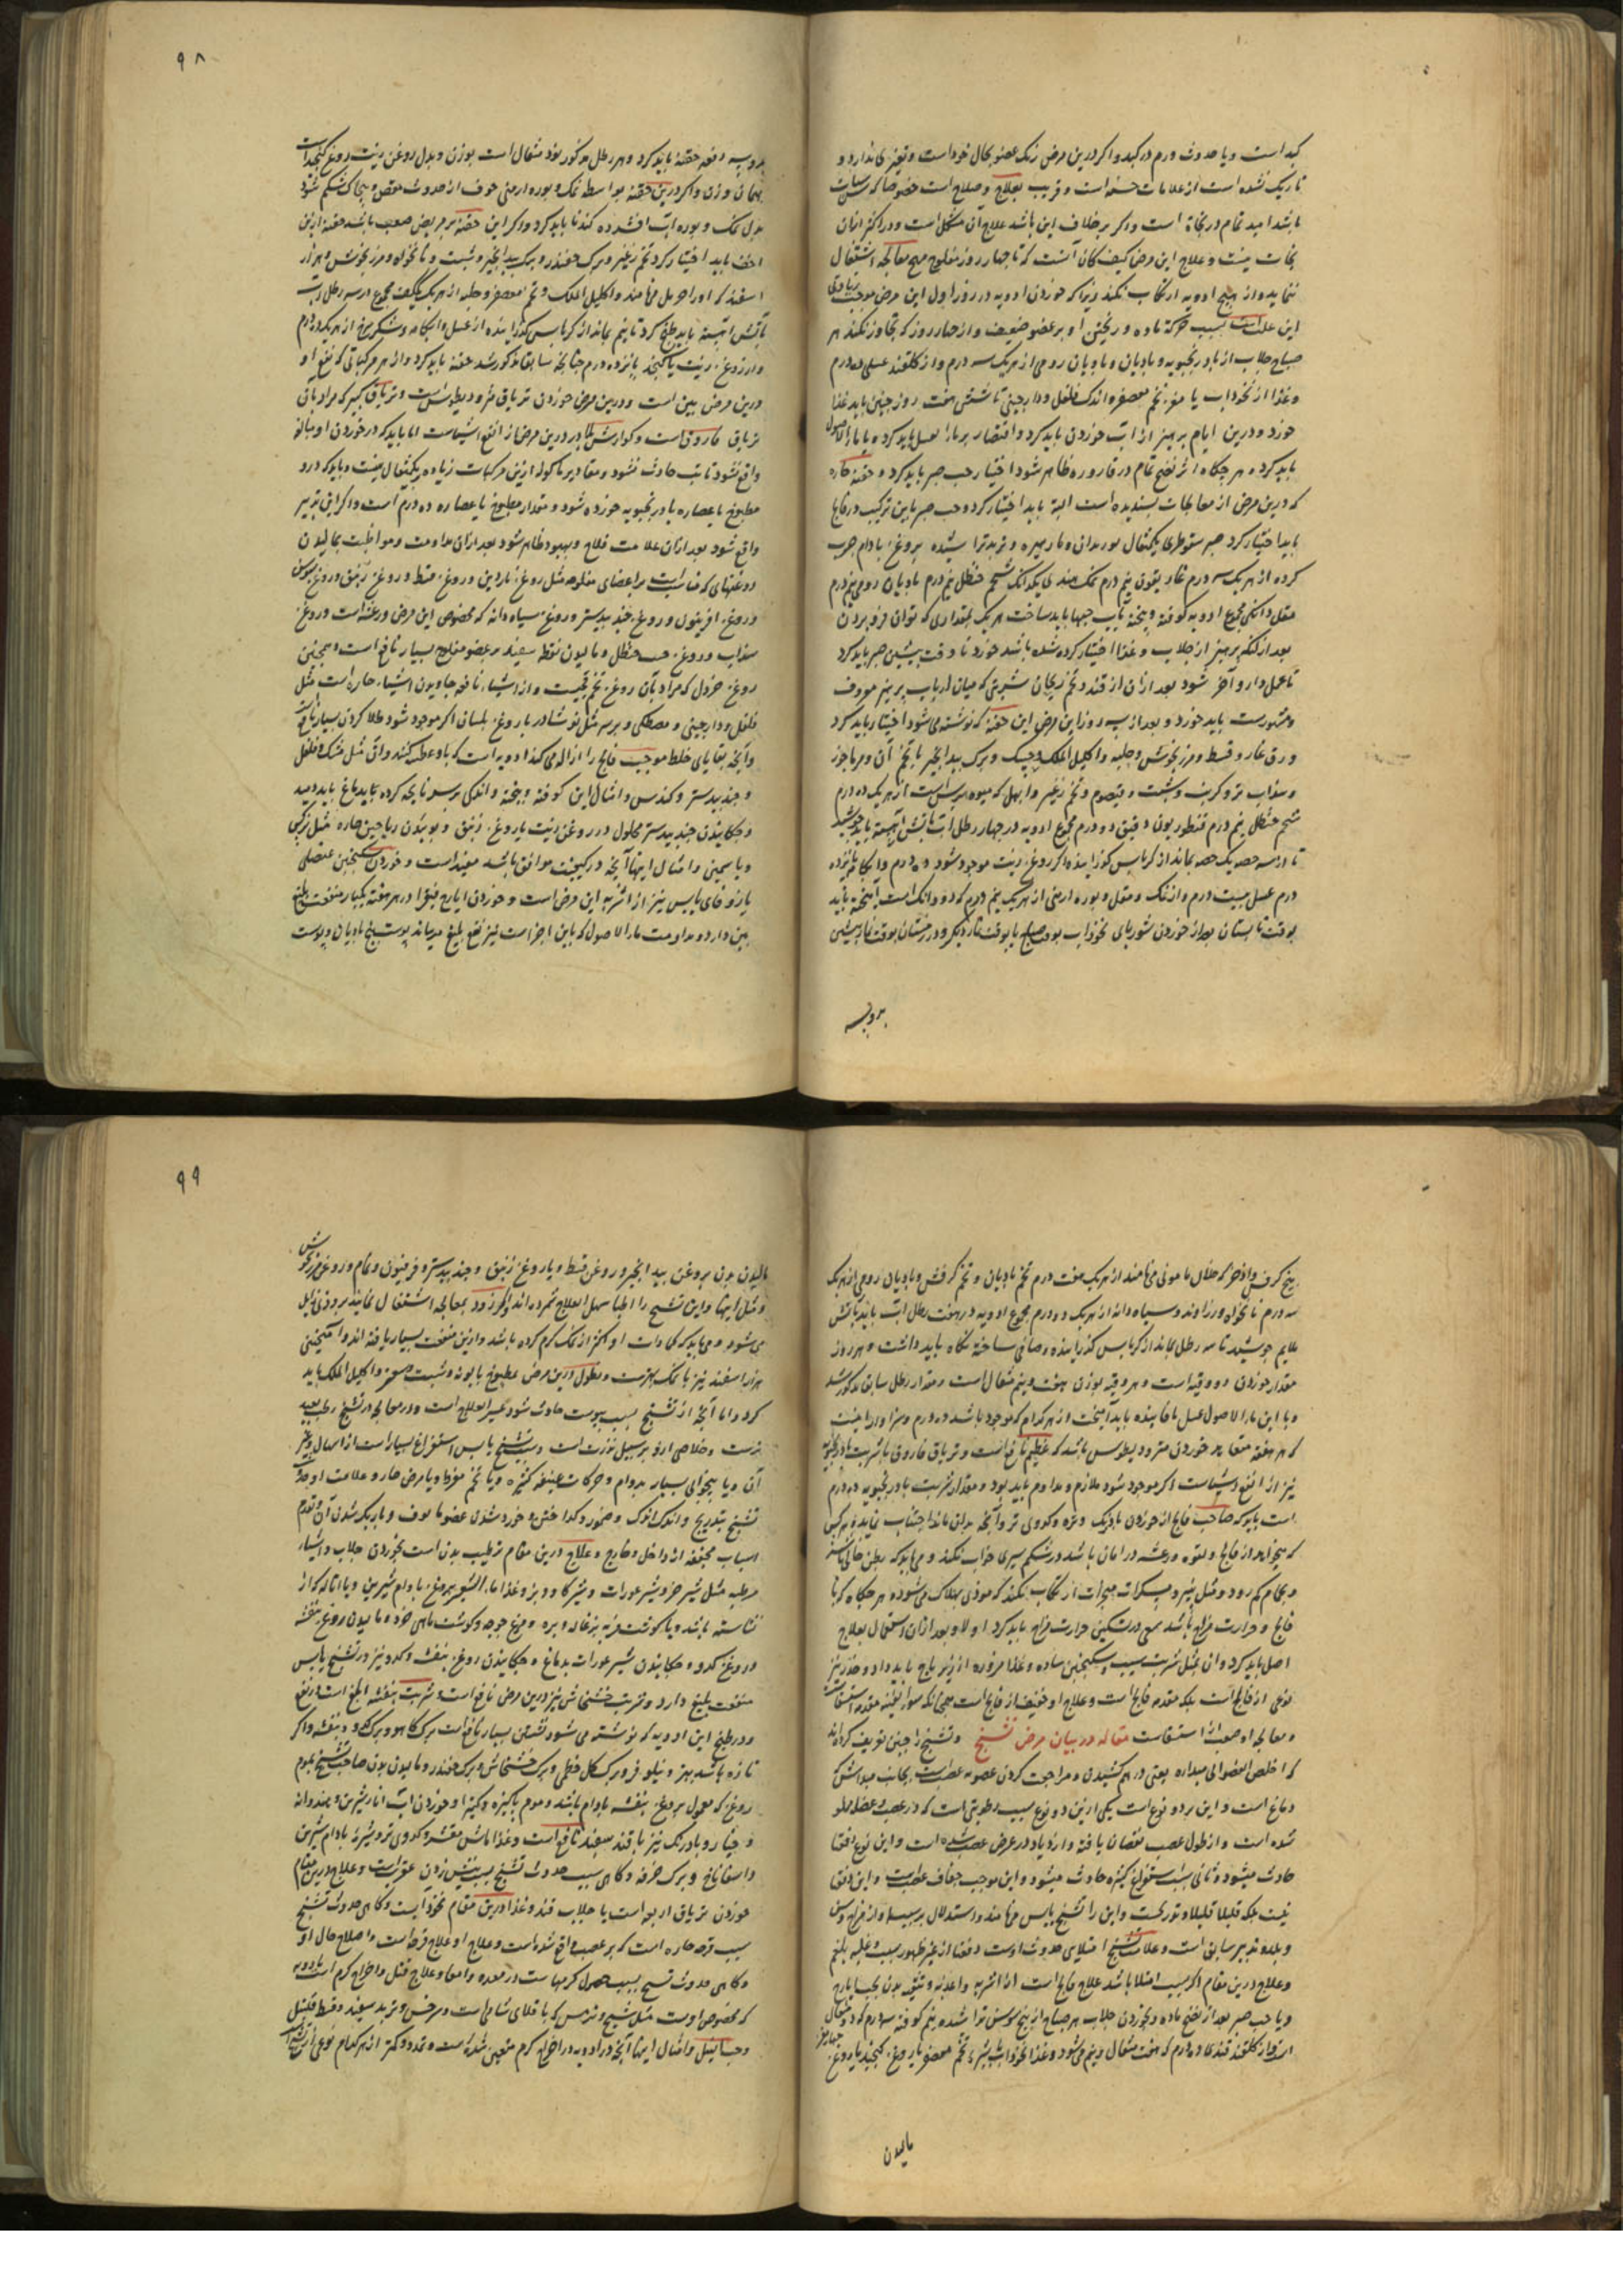 کبد است و یا حدوث ورم در کبد و اگر درین مرض رنک عضو بحال خود است و تغیر ندارد و
باریک نشده است از علامات حسنه است و قریب بعلاج و صلاح است خصوصا که سن
باشد امید تمام در نجاة است و اگر بر خلاف این باشد علاج آن مشکل است و در اکثر ازان
نجات نیست و علاج این مرض آنست که تا چهار روز مفلوج هیچ معالجه اشتغال
ننماید و از هیچ ادویه ارتکاب نکند زیرا که خوردن ادویه در روز اول این مرض موجب زیادتی
این علت است بسبب حرکة ماده و ریختن او بر عضو ضعیف و از چهار روز که تجاوز نکند هر
صباح جلاب از بادرنجبویه و بادیان و بادیان رومی از هریک سه درم و از کلقند عسلی ده درم
و غذا از نخوداب یا مغز تخم معصفر و اندک فلفل و دارچینی تا شش هفت روز چنین باید غذا
خورد و درین ایام پرهیز از آب خوردن باید کرد و اقتصار بر ماء العسل باید کرد و یا ماء الاصول
باید کرد و هر چکاه اثر نضج تمام در قاروره ظاهر شود اختیار حب صبر باید کرد و حقنه حاره
که درین مرض از معالجات پسندیده است البته باید اختیار کرد و حب صبر باین ترکیب در فالج
باید اختیار کرد صبر سقوطری یکمثقال بوزیدان و مازهیره و تربد تراشیده بروغن بادام چرب
کرده از هریک سه درم غاریقون نیم درم نمک هندی یکدانک شحم حنظل نیم درم بادیان رومی نیم درم
مقل دانکی مجموع ادویه کوفته و بیخته بآب حبها باید ساخت هریک بمقداری که توان فرو بردن
بعد از آنکه پرهیز از جلاب و غذا اختیار کرده شده باشد خورد تا وقت پیشین صبر باید کرد
تا عمل دارو آخر شود بعد ازان از قند و تخم ریحان شربتی که میان ارباب پرهیز معروف
و مشهورست باید خورد و بعد از سه روز این مرض این حقنه که نوشته می شود اختیار باید کرد
ورق غار و قسط و مرزنجوش و حلبه و اکلیل الملک و حسک و برک بید انجیر با تخم آن و مرماحوز
و سداب تر و کرنب و شبت و قیصوم و تخم زغیر و ابهل که میوه سرس است از هریک ده درم
شحم حنظل نیم درم قنطوریون دقیق دو درم مجموع ادویه در چهار رطل آب بآتش آهسته باید جوشید
تا از سه حصه یک حصه بماند از کرباس کذرانیده اگر روغن زیت موجود شود ده درم و آبکامه پانزده
درم عسل بیست درم و از نمک و مقل و بوره ارمنی از هریک نیم درم که دو دانک است آمیخته باید
بوقت تابستان بعد از خوردن شوربای نخوداب بوقت صباح یا بوقت نماز دیگر و در زمستان بوقت نماز پیشین
بدو سه
۹۸
بدو سه دفعه حقنه باید کرد و هر رطل مذکور نود مثقال است بوزن و بدل روغن زیت روغن کنجد است
بهمان وزن و اگر درین حقنه بواسطه نمک و بوره ارمنی خوف از حدوث مغص و پیچاک شکم شود
بدل نمک و بوره آب افشرده کندنا باید کرد و اگر این حقنه بر مریض صعب باشد حقنه ازین
اخف باید اختیار کرد تخم زغیر و برک چغندر و برک بید انجیر و شبت و نانخواه و مرزنجوش و هزار
اسفند که او را حرمل می نامند و اکلیل الملک و تخم معصفر و حلبه از هریک یک کف مجموع در سه رطل آب
بآتش آهسته باید طبخ کرد تا نیم بماند از کرباس کذرانیده از عسل و آبکامه و شکر سرخ از هریک ده درم
و از روغن زیت یا کنجد پانزده درم چنانچه سابقا مذکور شد حقنه باید کرد و از هر مرکباتی که نفع او
درین مرض بین است و درین مرض خوردن تریاق مثرودیطوس است و تریاق کبیر که مراد بان
تریاق فاروق است و کوارش بلادر درین مرض از انفع اشیاست اما باید که در خوردن او مبالغه
واقع نشود تا تب حادث نشود و مقادیر ماکوله ازین مرکبات زیاده بر یکمثقال نیست و باید که در
مطبوخ یا عصاره بادرنجبویه خورده شود و مقدار مطبوخ یا عصاره ده درم است و اگر این تدبیر
واقع شود بعد ازان علامت فلاح و بهبود ظاهر شود بعد ازان مداومت و مواظبت بمالیدن
روغنهای که مناسب است بر اعضای مفلوجه مثل روغن ناردین و روغن قسط و روغن زنبق و روغن سوسن
و روغن افربیون و روغن جند بیدستر و روغن سیاه دانه که مخصوص این مرض و رعشه است و روغن
سداب و روغن حب حنظل و مالیدن نفط سفید بر عضو مفلوج بسیار نافع است و همچنین
روغن خردل که مراد بآن روغن تخم قجیست و از اشیاء نافعه جاویدن اشیاء حاره است مثل
فلفل و دارچینی و مصطکی و بر سه مثل نوشادر با روغن بلسان اگر موجود شود طلا کردن بسیار نافع
و آنچه بقایای خلط موجب فالج را ازاله می کند ادویه است که باو عطسه کنند و آن مثل مشک و فلفل
و جند بیدستر و کندس و امثال این کوفته و بیخته و اندکی بر سر نایچه کرده بجانب دماغ باید دمید
و چکانیدن جند بیدستر محلول در روغن زیت یا روغن زنبق و بوئیدن ریاحین حاره مثل نرکس
و یاسمین و امثال اینها آنچه در کیفیت موافق باشد مفید است و خوردن سکنجبین عنصلی
یا زوفای یابس نیز از اشربه این مرض است و خوردن ایارج فیقرا در هر هفته یکبار منفعت بلیغ
بین دارد و مداومت ماء الاصول که باین اجزاست نیز نفع بلیغ میرساند پوست بیخ بادیان و پوست
بیخ کرفس و اذخر که خلال مامونی می نامند از هریک هفت درم تخم بادیان و تخم کرفس و بادیان رومی از هریک
سه درم نانخواه و زراوند و سیاه دانه از هریک دو درم مجموع ادویه در هفت رطل آب باید بآتش
ملایم جوشید تا سه رطل بماند از کرباس کذرانیده و صافی ساخته نگاه باید داشت و هر روز
مقدار خوردن دو وقیه است و هر وقیه بوزن هفت و نیم مثقال است و مقدار رطل سابق مذکور شد
و با این ماء الاصول عسل یا فانیذ باید آمیخت از هر کدام که موجود باشد ده درم و سزاوار اینست
که هر هفته مقارن خوردن مثرودیطوس باشد که عظیم نافع است و تریاق فاروق با شربت بادرنجبویه
نیز از انفع اشیاست اگر موجود شود ملازم و مداوم باید بود و مقدار شربت بادرنجبویه ده درم
است باید که صاحب فالج از خوردن بادرنک و غره و کدوی تر و آنچه بدان ماند اجتناب نماید و هر کس
که میخواهد از فالج و لقوه و رعشه در امان باشد در شکم سیری خواب نکند و می باید که بطن خالی باشد
و بحمام کم رود و مثل پنیر و مسکرات ارتکاب نکند که موذی بهلاک می شود و هر چکاه که با
فالج و حرارت مزاج باشد سعی در تسکین حرارت مزاج باید کرد اولا و بعد ازان اشتغال بعلاج
اصل باید کرد و آن بمثل شربت سیب و سکنجبین ساده و غذا مزوره از زیرباج باید داد و خدر نیز
نوعی از فالج است بلکه مقدمه فالج است و علاج او خفیف از فالج است همچنانکه سوء القنیه مقدمه استسقاست
و معالجه او معالجه استسقاست مقاله در بیان مرض تشنج و تشنج را چنین تعریف کرده اند
که اخلص العضو الی مبداره یعنی در هم کشیدن و مراجعت کردن عضو به عصب است بجانب مبدا اش که
دماغ است و این بر دو نوع است یکی ازین دو نوع بسبب رطوبتی است که در عصب عضله مملو
شده است و از طول عصب نقصان یافته و ازدیاد در عرض عصب شده است و این نوع دفعتا
حادث میشود و ثانی بسبب استفراغ کثیره حادث میشود و این موجب جفاف عصب است و این دفعتا
نیست بلکه قلیلا قلیلا و تدریجست و این را تشنج یابس می نامند و استدلال بر سبب او از مزاج و سن
و بلد و تدبیر سابق است و علامت تشنج امتلای حدوث اوست دفعتا از غیر ظهور سبب و غلبه بلغم
و علاج درین مقام اگر بسبب امتلا باشد علاج فالج است از اشربه و اغذیه و تنقیه بدن بحب ایارج
و یا حب صبر بعد از نضج ماده و بخوردن جلاب هر صباح از بیخ سوسن تراشیده نیم کوفته سه درم که دو مثقال
است و از کلقند قندی ده درم که هفت مثقال و نیم می شود و غذا نخوداب با شیره تخم معصفر یا روغن کنجد یا روغن
مالیدن
۹۹
مالیدن بدن بروغن بید انجیر و روغن قسط و یا روغن زنبق و جند بیدستر و فرفیون و تمام و روغن مرزنجوش
و مثل اینها و این تشنج را اطبا سهل العلاج شمرده اند اگر زود بمعالجه اشتغال نمایند بزودی زایل
می شود و می باید که کمادات او اکثر از نمک گرم کرده باشد و ازین منفعت بسیار یافته اند و آمیختن
هزار اسفند نیز با نمک بهترست و نطول درین مرض بمطبوخ بابونه و شبت و صعتر و اکلیل الملک باید
کرد و اما آنچه از تشنج بسبب یبوست حادث شود عسیر العلاج است و در معالجه از تشنج رطب بعید
ترست و خلاصی ازو بر سبیل ندرت است و سبب تشنج یابس استفراغ بسیار است از اسهال و غیر
آن و یا بیخوابی بسیار بدوام و حرکات عنیفه کثیره و یا تخم مفرط و یا مرض حار و علامت او حدوث
تشنج بتدریج و اندک اندک و ضمور و کداختن و خورد شدن عضو ماوف و باریک شدن آن و تقدم
اسباب مجففه از داخل و خارج و علاج درین مقام ترطیب بدن است بخوردن جلاب و اشیاء
مرطبه مثل شیر خر و شیر عورات و شیر گاو و بز و غذا ماء الشعیر بروغن بادام شیرین و یا پالوده که از
نشاسته باشد و یا گوشت فربه بزغاله و بره و مرغ جوجه و گوشت ماهی خرد و مالیدن روغن بنفشه
و روغن کدو و چکانیدن شیر عورات بدماغ و چکانیدن روغن بنفشه و کدو نیز در تشنج یابس
منفعت بلیغ دارد و شربت خشخاش نیز درین مرض نافع است و شربت بنفشه ابلغ است در نفع
و در طبیخ این ادویه که نوشته می شود نشستن بسیار نافع است برک کاهو و برک کدو و بنفشه و اگر
تازه باشد بهتر و نیلوفر و برک کل خطمی و برک خشخاش و برک چغندر و مالیدن بدن صاحب تشنج بموم
روغن که معمول بروغن بنفشه بادام باشد و موم پاکیزه و کتیرا و خوردن آب انار شیرین و هندوانه
و خیار و بادرنک نیز با قند سفید نافع است و غذا ماش مقشر و کدوی تر و شیره بادام شیرین
و اسفاناخ و برک خرفه و گاهی سبب حدوث تشنج بسبب نیش زدن عقرب است و علاج درین مقام
خوردن تریاق اربعه است یا جلاب قند و غذا درین مقام نخوداب است و گاهی حدوث تشنج
بسبب قرحه حاره است که بر عصب واقع شده است و علاج او علاج قرحه است و اصلاح حال او
و گاهی حدوث تشنج بسبب حصول کرمهاست در معده و امعا و علاج قتل و اخراج کرم است بادویه
که مخصوص اوست مثل شیح و ترمس که باقلای شامی است و سرخس و تربد سفید و قسط و قنبیل
و حب النیل و امثال اینها آنچه در ادویه در اخراج کرم متعین شده است و قدر دو کتر از هر کدام نوعی از